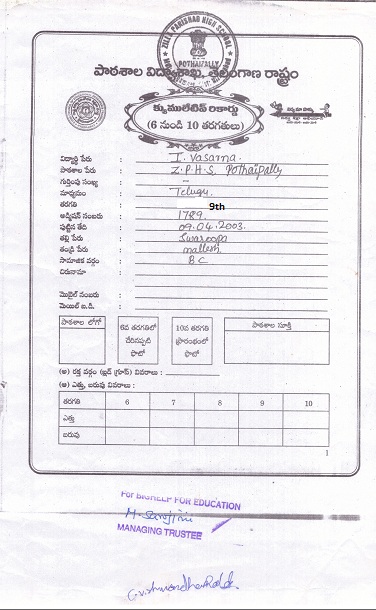 ZILLA PARISHAD HIGH SCHOOL
POTHAIPALLY
పాఠశాల విద్యాశాఖ, తెలంగాణ రాష్ట్రం
క్యుములేటివ్ రికార్డు
(6 నుండి 10 తరగతులు)
విద్యార్థి పేరు : I. Vasarna.
పాఠశాల పేరు : Z.P.H.S. Pothaipally
గుర్తింపు సంఖ్య : —
మాధ్యమం : Telugu.
తరగతి : 9th
అడ్మిషన్ నంబరు : 1789.
పుట్టిన తేది : 09.04.2003.
తల్లి పేరు : Swaroopa
తండ్రి పేరు : mallesh
సామాజిక వర్గం : B C
చిరునామా :
మొబైల్ నంబరు :
మెయిల్ ఐ.డి. :
పాఠశాల లోగో
6వ తరగతిలో చేరినప్పటి ఫొటో
10వ తరగతి ప్రారంభంలో ఫొటో
పాఠశాల సూక్తి
(అ) రక్త వర్గం (బ్లడ్ గ్రూప్) వివరాలు :
(ఆ) ఎత్తు, బరువు వివరాలు :
తరగతి 6 7 8 9 10
ఎత్తు
బరువు
1
For BIGHELP FOR EDUCATION
MANAGING TRUSTEE